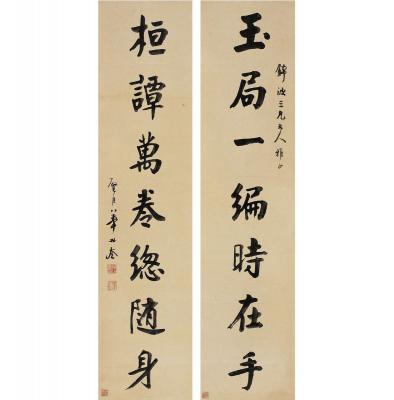 玉局一編時在手
三兄大人雅正
桓譚萬卷總随身